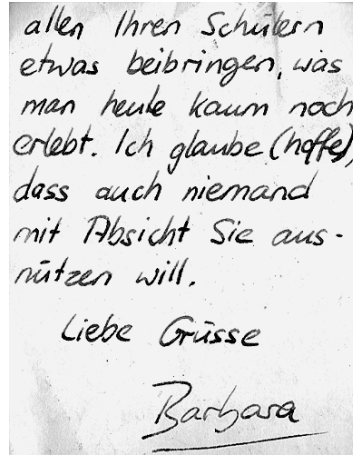 allen Ihren Schülern
etwas beibringen, was
man heute kaum noch
erlebt. Ich glaube (hoffe),
dass auch niemand
mit Absicht Sie aus-
nützen will.
Liebe Grüsse
Barbara